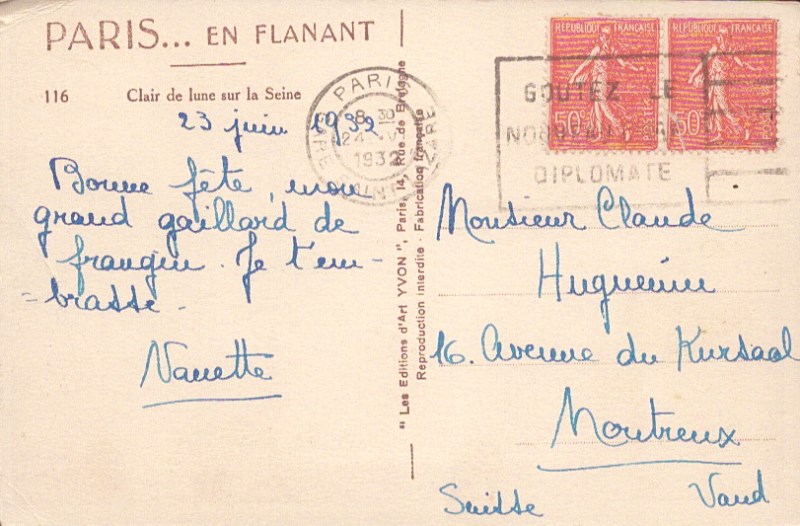 PARIS... EN FLANANT
116 Clair de lune sur la Seine
23 juin 1932
Bonne fête, mon
grand gaillard de
frangin. Je t'em-
-brasse.
Nanette
"Les Editions d'Art YVON", Paris, 14, Rue de Bretagne
Reproduction interdite - Fabrication française
PARIS
8 30
24
1932
GARE
LAZARE
REPUBLIQUE FRANÇAISE
50c
REPUBLIQUE FRANÇAISE
50c
GOUTEZ LE
DIPLOMATE
Monsieur Claude
Huguenin
16. Avenue du Kursaal
Montreux
Suisse Vaud